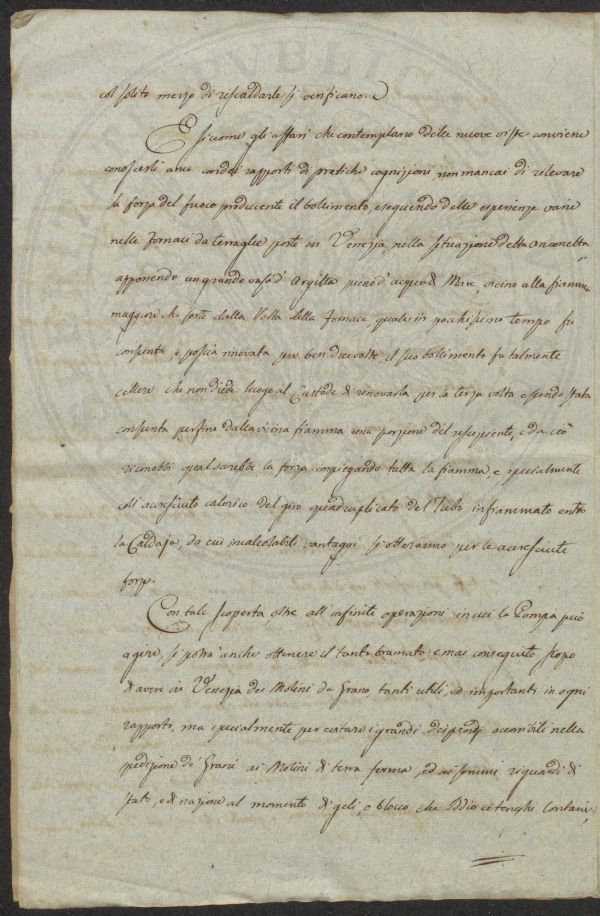 col solito mezzo di riscaldarle si verificano.
E siccome gli affari che contemplano delle nuove viste conviene
conoscerli anco coi rapporti di pratiche cognizioni non mancai di rilevare
la forza del fuoco producente il bollimento, eseguendo delle esperienze varie
nelle Fornaci da terraglie poste in Venezia, nella situazione della Anconetta
apponendo un grande vaso d'Argilla pieno d'acqua di Mare, vicino alla fiamma
maggiore che sorte dalla Volta della Fornace, quale in pochissimo tempo fu
consunta, e poscia rinovata per ben due volte, il suo bollimento fu talmente
celere che non diede luogo al Custode di rinovarla per la terza volta essendo stata
consunta perfino dalla vicina fiamma una porzione del recipiente, e da ciò
riconobbi qual sarebbe la forza impiegando tutta la fiamma, e specialmente
coll'accresciuto calorico del giro quadruplicato del Tubo infiammato entro
la Caldaja, da cui incalcolabili vantaggi si otteranno per le accresciute
forze.
Con tale scoperta oltre all'infinite operazioni in cui la Pompa può
agire, si potrà anche ottenere il tanto bramato, e mai conseguito scopo
di avere in Venezia dei Molini da Grano, tanti utili, ed importanti in ogni
rapporto, ma specialmente per evitare i grandi dispendj accessibili nella
spedizione de' Grani ai Molini di terra ferma, ed ai sommi riguardi di
stato, e di nazione al momento di geli, o blocco, che Iddio ci tenghi lontani;